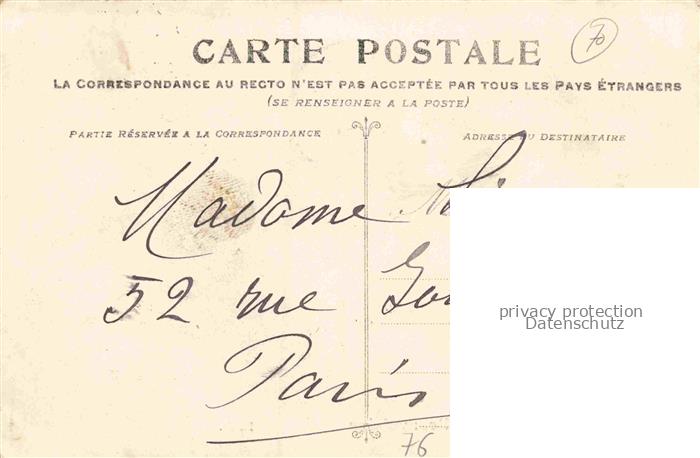 70
CARTE POSTALE
LA CORRESPONDANCE AU RECTO N'EST PAS ACCEPTÉE PAR TOUS LES PAYS ÉTRANGERS
(SE RENSEIGNER A LA POSTE)
PARTIE RÉSERVÉE A LA CORRESPONDANCE
ADRESSE DU DESTINATAIRE
Madame
52 rue
Paris
privacy protection
Datenschutz
76